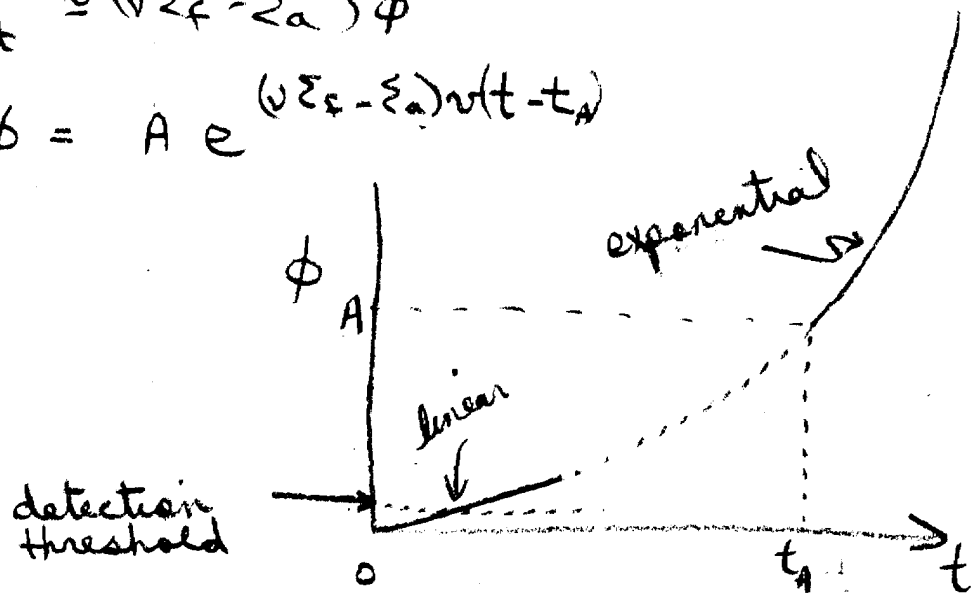 t = (νΣf - Σa) φ
φ = A e^(νΣf - Σa)v(t - tA)
exponential
φ
A
linear
detection
threshold
0
tA
t